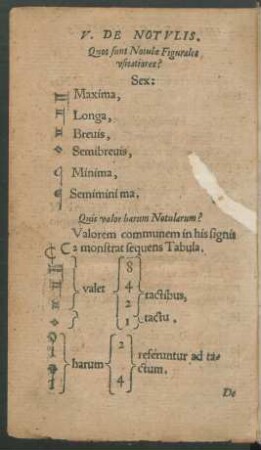 V. DE NOTVLIS.
Quot sunt Notulæ Figurales
vsitatiores?
Sex:
Maxima,
Longa,
Breuis,
Semibreuis,
Minima,
Seminima.
Quis valor harum Notularum?
Valorem communem in his signis
C C2 monstrat sequens Tabula.
8
valet 4 tactibus,
2
1 tactu.
harum 2 referuntur ad ta-
4 ctum.
De